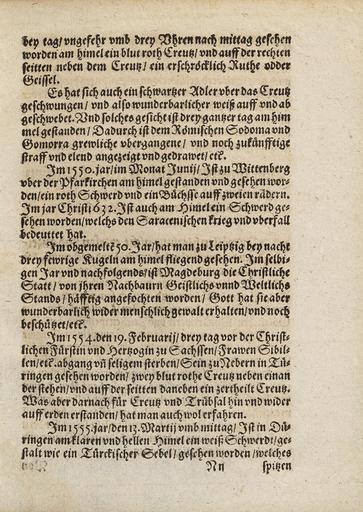 bey tag/ vngefehr vmb drey Vhren nach mittag gesehen
worden am himel ein blut roth Creutz/ vnd auff der rechten
seitten neben dem Creutz/ ein erschröcklich Ruthe odder
Geissel.
Es hat sich auch ein schwartzer Adler vber das Creutz
geschwungen/ vnd also wunderbarlicher weiß auff vnd ab
geschwebet. Vnd solches gesicht ist drey gantzer tag am him
mel gestanden/ Dadurch ist dem Römischen Sodoma vnd
Gomorra grewliche vbergangene/ vnd noch zukünfftige
straff vnd elend angezeigt vnd gedrawet/ etc.
Im 1550. jar/ im Monat Junij/ Ist zu Wittenberg
vber der Pfarkirchen am himel gestanden vnd gesehen wor-
den/ ein roth Schwerd vnd ein Büchsse auff zweien rädern.
Im jar Christi 632. Ist auch am Himel ein Schwerd ge
sehen worden/ welches den Saracenischen krieg vnd vberfall
bedeuttet hat.
Im obgemelte 50. Jar/ hat man zu Leiptzig bey nacht
drey fewrige Kugeln am himel fliegend gesehen. Im selbi-
gen Jar vnd nachfolgends/ ist Magdeburg die Christliche
Statt/ von jhren Nachbaurn Geistlichs vnnd Weltlichs
Stands/ häfftig angefochten worden/ Gott hat sie aber
wunderbarlich wider menschlich gewalt erhalten/ vnd noch
beschützet/ etc.
Im 1554. den 19. Februarij/ drey tag vor der Christ-
lichen Fürstin vnd Hertzogin zu Sachssen/ Frawen Sibil-
len/ etc. abgang vñ seligem sterben/ Sein zu Nebern in Tü-
ringen gesehen worden/ zwey blut rothe Creutz neben einan
der stehen/ vnd auff der seitten daneben ein zertheilt Creutz.
Was aber darnach für Creutz vnd Trübsal hin vnd wider
auff erden erstanden/ hat man auch wol erfahren.
Im 1555. jar/ den 13. Martij vmb mittag/ Ist in Dü-
ringen am klaren vnd hellen Himel ein weiß Schwerdt/ ge-
stalt wie ein Türckischer Sebel/ gesehen worden/ welches
Nn spitzen